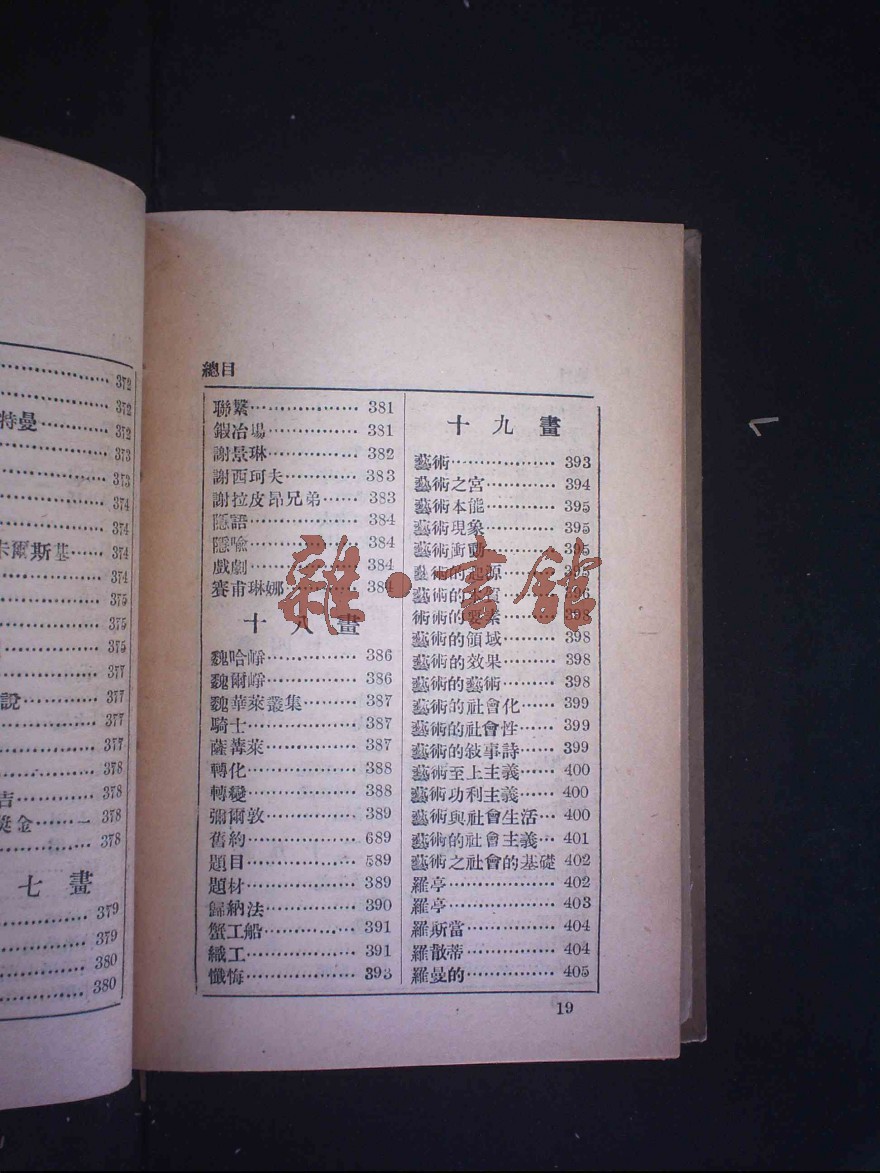 372
372
特曼 372
373
373
374
374
朱爾斯基 374
374
375
375
375
377
說 377
377
377
378
吉 378
獎金 378
378
七畫
379
379
380
380
總目
聯繫 381
鍜冶場 381
謝景琳 382
謝西珂夫 383
謝拉皮昂兄弟 383
隱語 384
隱喻 384
戲劇 384
賽甫琳娜
十八畫
魏哈崢 386
魏爾崢 386
魏華萊叢集 387
騎士 387
薩蒍萊 387
轉化 388
轉變 388
彌爾敦 389
舊約 689
題目 589
題材 389
歸納法 390
蟹工船 391
織工 391
懺悔 393
十九畫
藝術 393
藝術之宮 394
藝術本能 395
藝術現象 395
藝術衝動 395
藝術的起源 395
藝術的本質 396
術術的要素 398
藝術的領域 398
藝術的效果 398
藝術的藝術 398
藝術的社會化 399
藝術的社會性 399
藝術的敍事詩 399
藝術至上主義 400
藝術功利主義 400
藝術與社會生活 400
藝術的社會主義 401
藝術之社會的基礎 402
羅亭 402
羅亭 403
羅斯當 404
羅散蒂 404
羅曼的 405
19
雜·書館